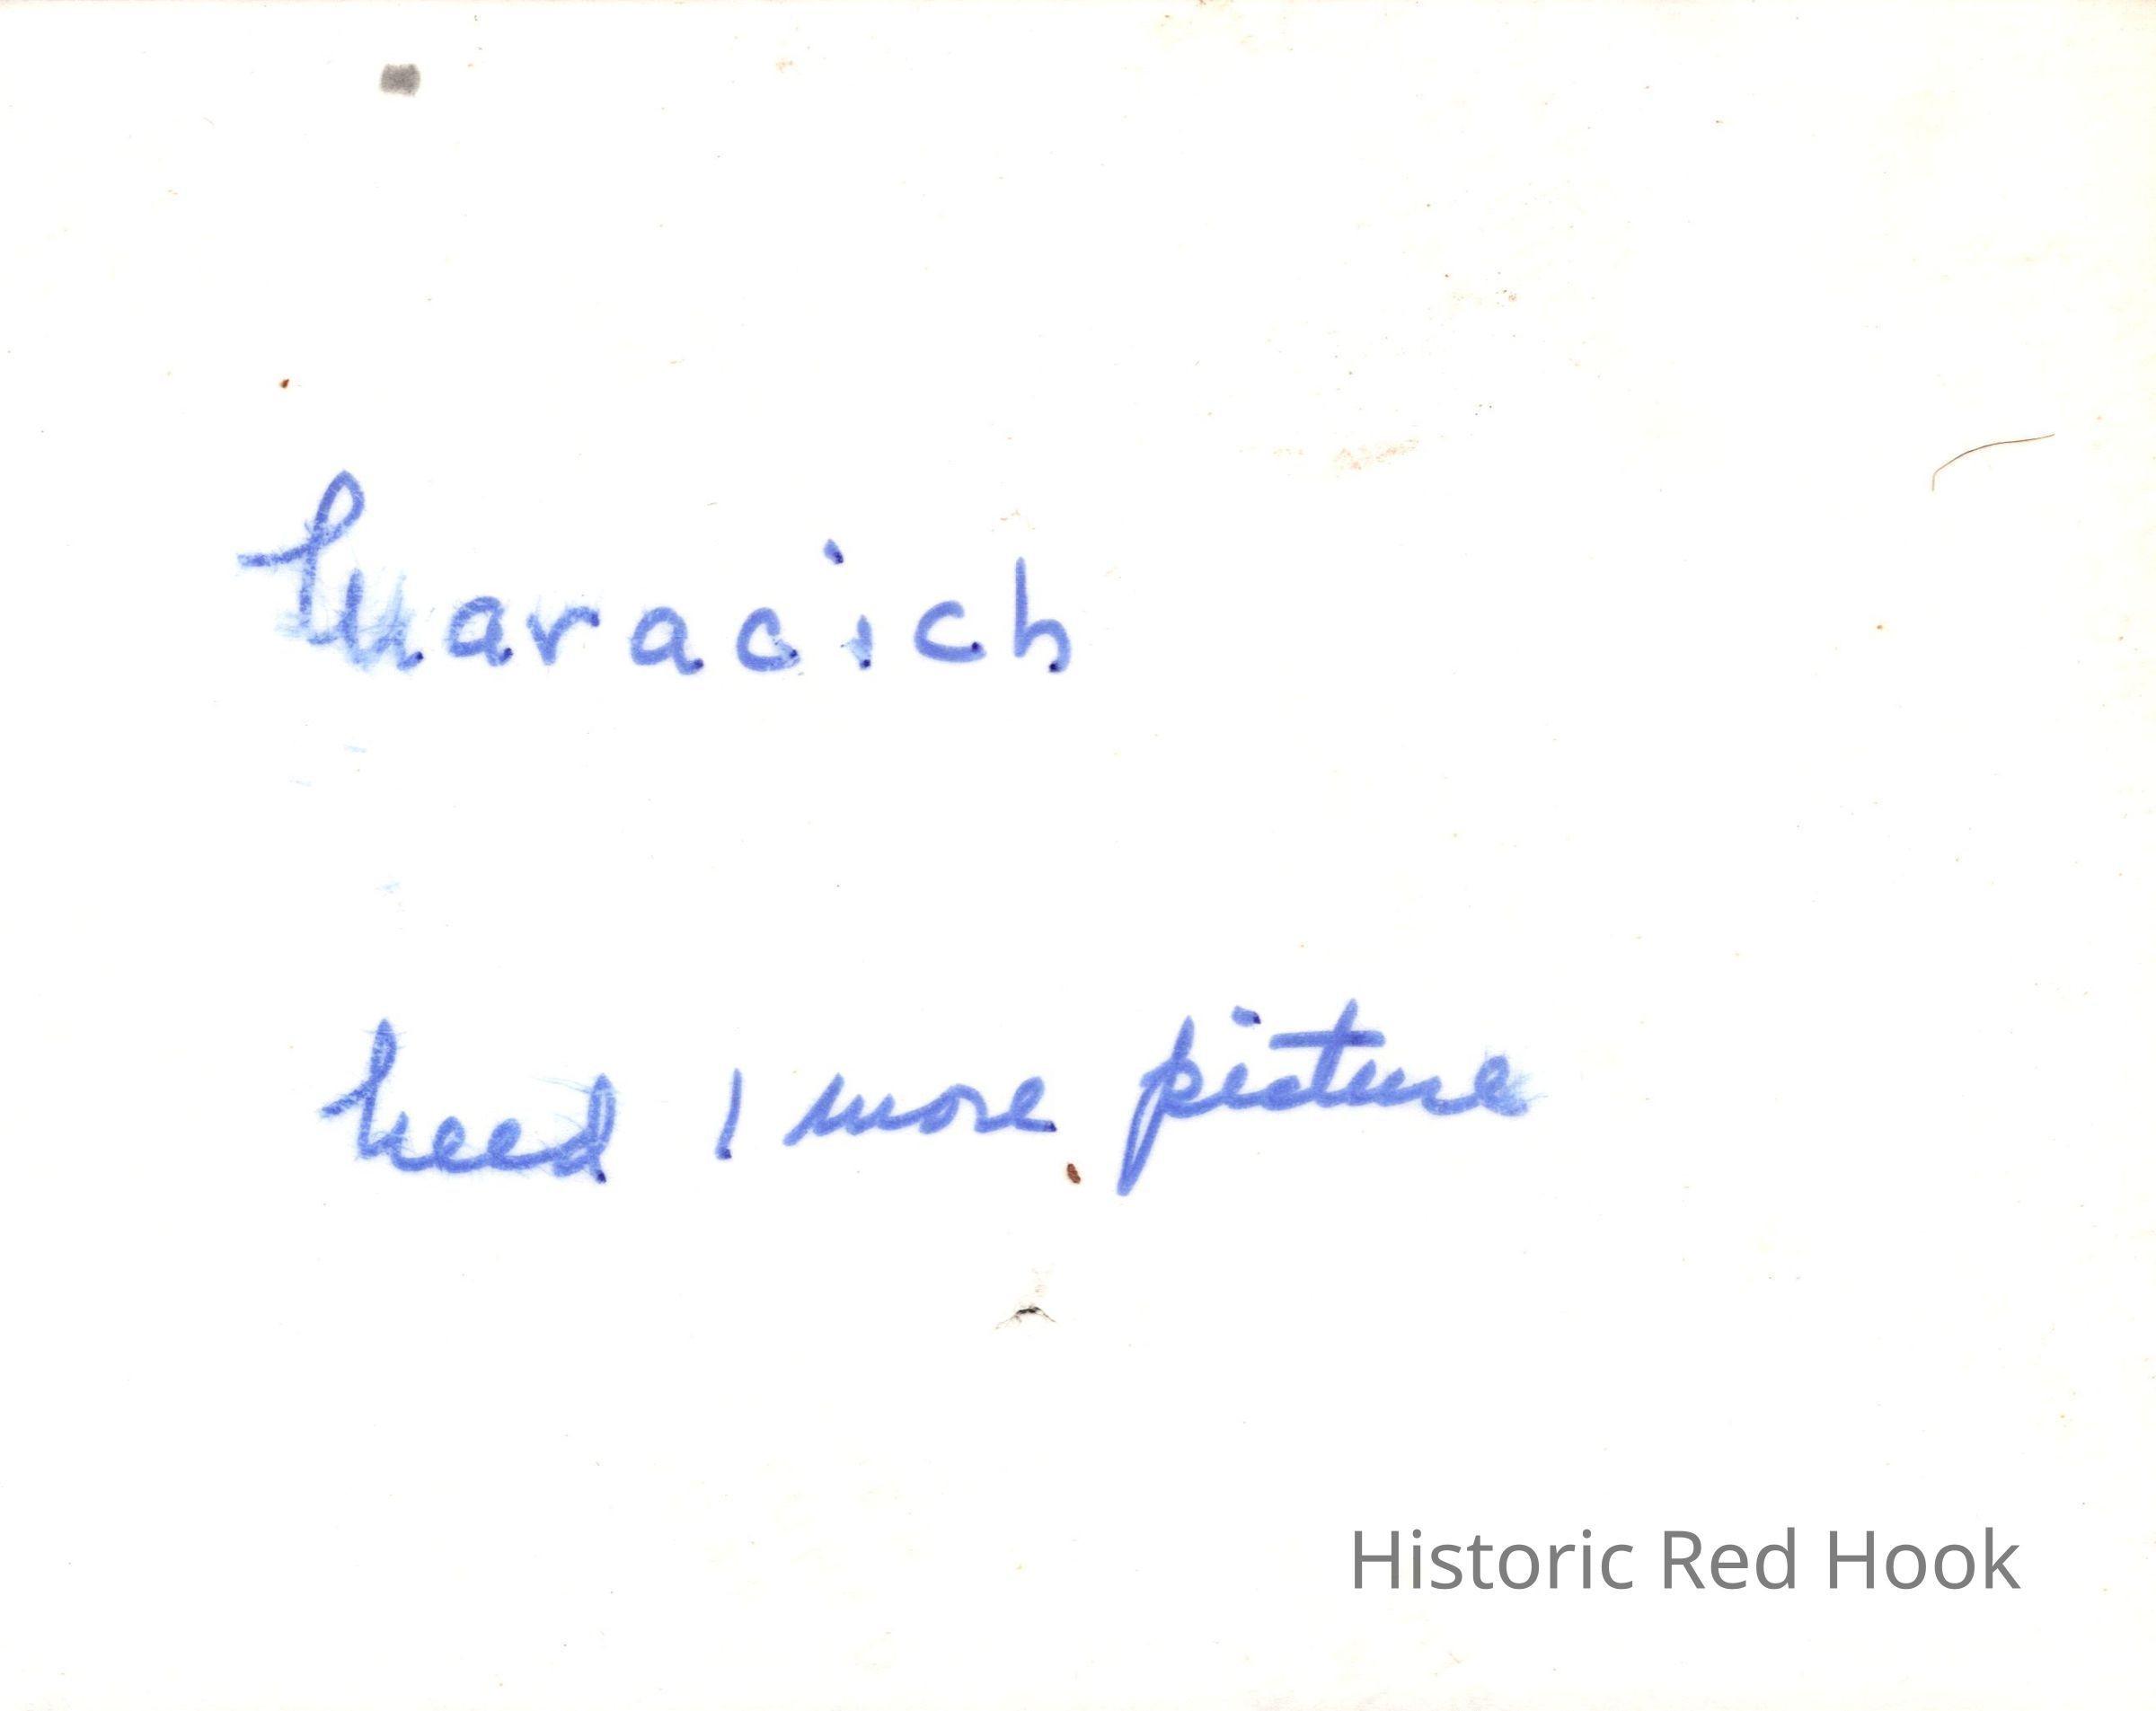 Maracich
need 1 more picture
Historic Red Hook